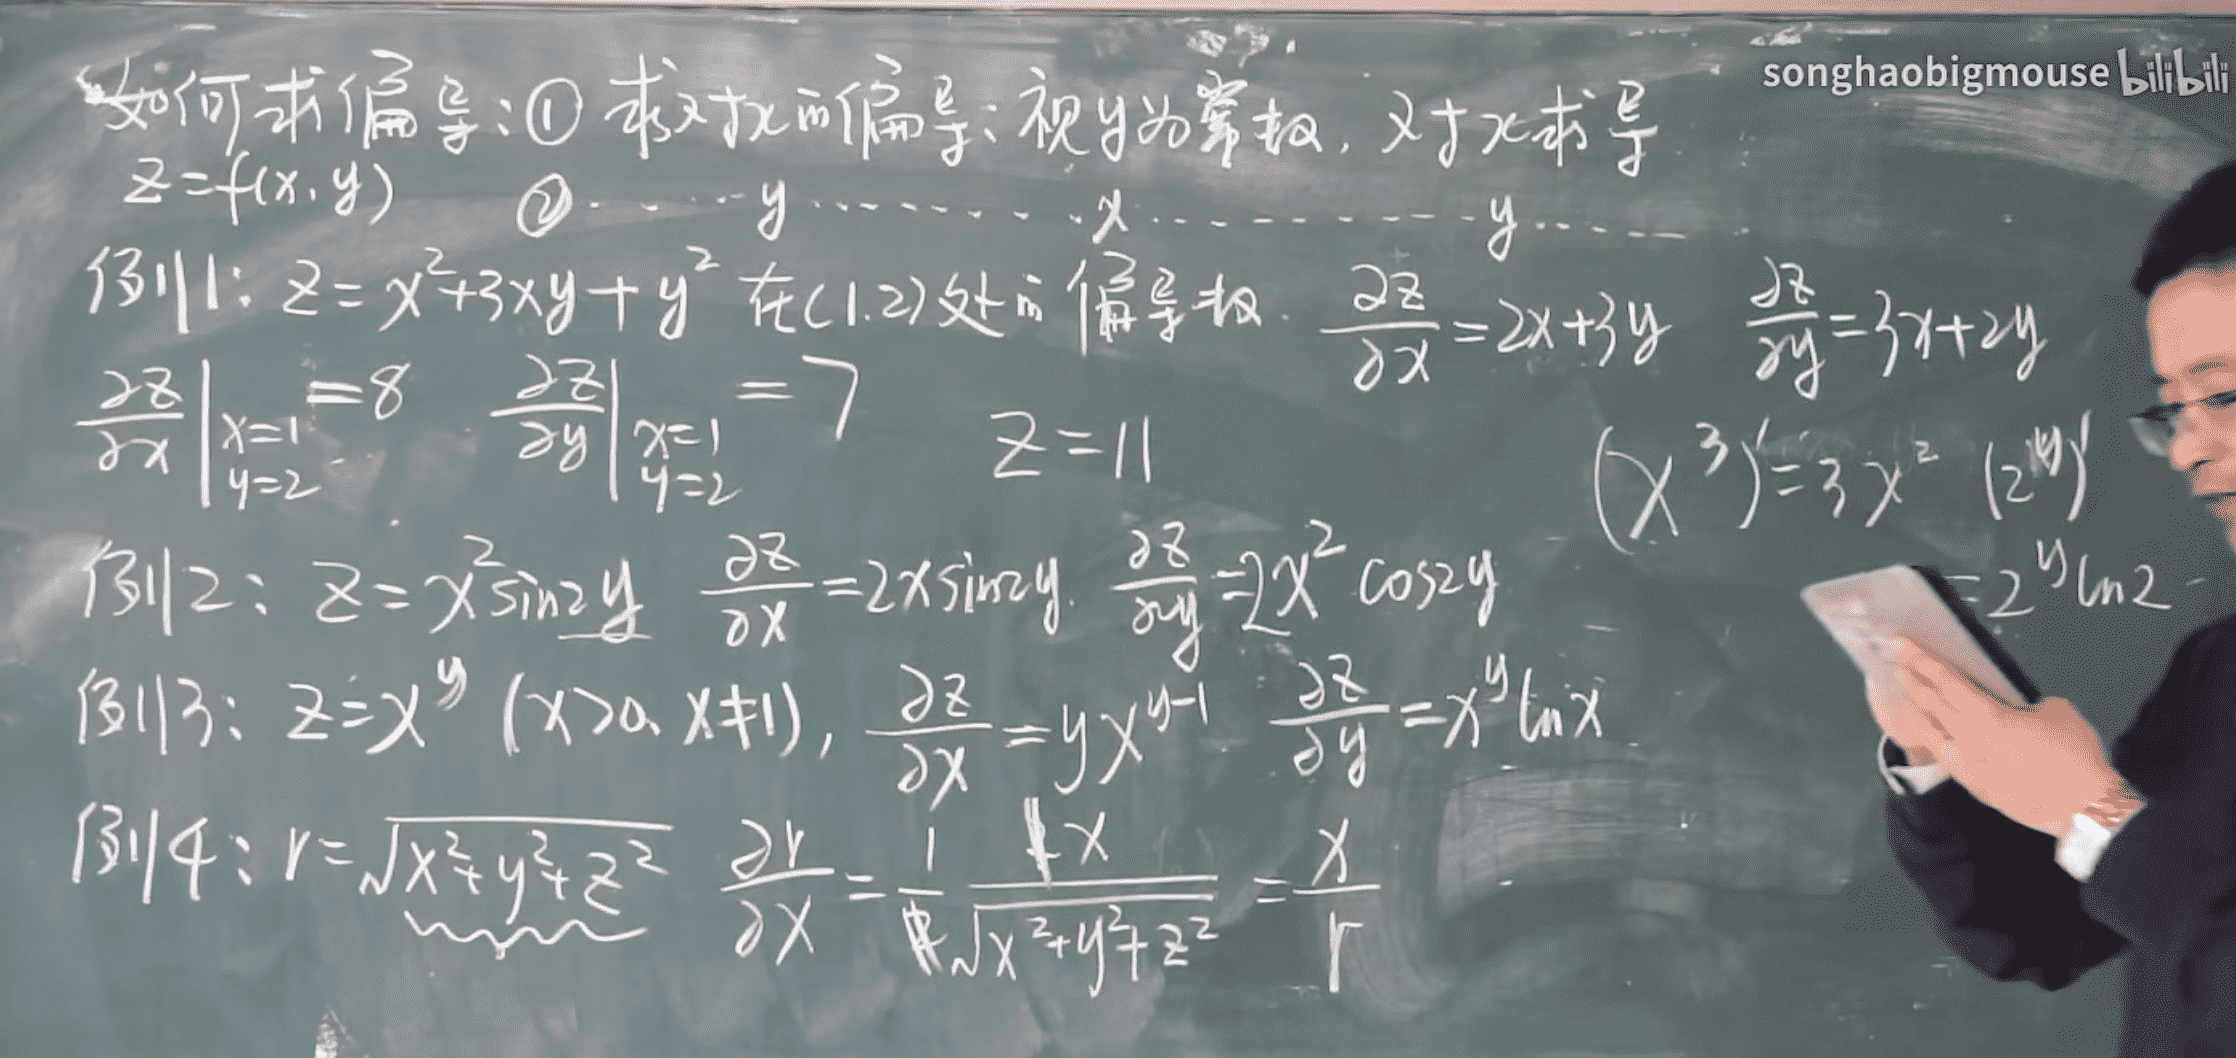 songhaobigmouse bilibili
如何求偏导:① 求对x的偏导:视y为常数,对x求导
z=f(x,y) ②·····y········x·········y·····
例1: z=x²+3xy+y² 在(1.2)处的偏导数. ∂z/∂x=2x+3y ∂z/∂y=3x+2y
∂z/∂x|x=1 y=2 =8 ∂z/∂y|x=1 y=2 =7 z=11 (x³)'=3x² (2^y)'
=2^y ln2
例2: z=x²sin2y ∂z/∂x=2xsin2y. ∂z/∂y=2x²cos2y
例3: z=x^y (x>0, x≠1), ∂z/∂x=yx^(y-1) ∂z/∂y=x^y lnx
例4: r=√(x²+y²+z²) ∂r/∂x=1/2 2x/√(x²+y²+z²)=x/r